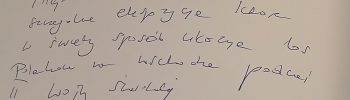 szczególne ekspozycja która
w świetny sposób ukazuje los
Polaków na wschodzie podczas
II wojny światowej